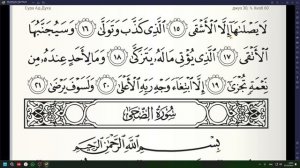 Сура Ад-Духа джуз 30, ¼ Хизб 60
لَا يَصْلَىٰهَآ إِلَّا ٱلْأَشْقَى ١٥ ٱلَّذِى كَذَّبَ وَتَوَلَّىٰ ١٦ وَسَيُجَنَّبُهَا
ٱلْأَتْقَى ١٧ ٱلَّذِى يُؤْتِى مَالَهُۥ يَتَزَكَّىٰ ١٨ وَمَا لِأَحَدٍ عِندَهُۥ مِن
نِّعْمَةٍ تُجْزَىٰٓ ١٩ إِلَّا ٱبْتِغَآءَ وَجْهِ رَبِّهِ ٱلْأَعْلَىٰ ٢٠ وَلَسَوْفَ يَرْضَىٰ ٢١
سُورَةُ الضُّحَىٰ
بِسْمِ ٱللَّهِ ٱلرَّحْمَٰنِ ٱلرَّحِيمِ